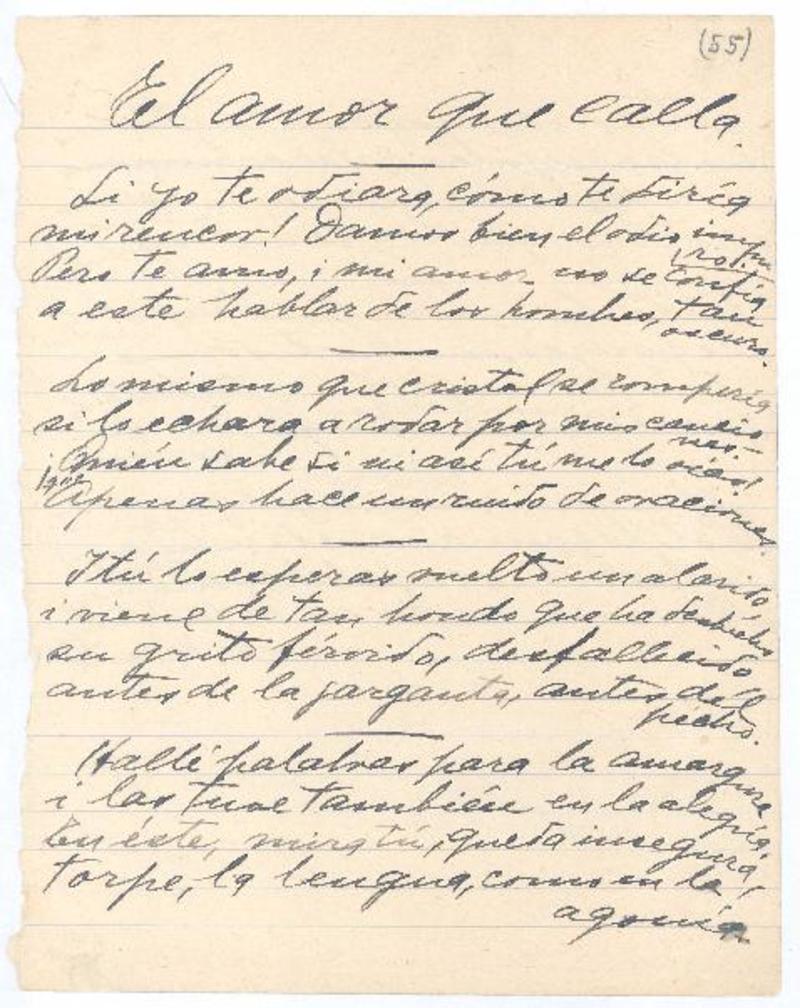 (55)
El amor que calla.
Si yo te odiara, cómo te diría
mi rencor! Damos bien el odio impu
ro!
Pero te amo, i mi amor no se confía
a este hablar de los hombres, tan
oscuro.
Lo mismo que cristal se rompería
si lo echara a rodar por mis cancio
nes.
¡Quién sabe si ni así tú me lo oías!
¡que
Apenas hace un ruido de oraciones.
I tú lo esperas vuelto un alarido
i viene de tan hondo que ha deshecho
su grito férvido, desfallecido
antes de la garganta, antes del
pecho.
Hallé palabras para la amargura
i las tuve también en la alegría.
En éste, mira tú, queda insegura,
torpe, la lengua, como en la
agonía.